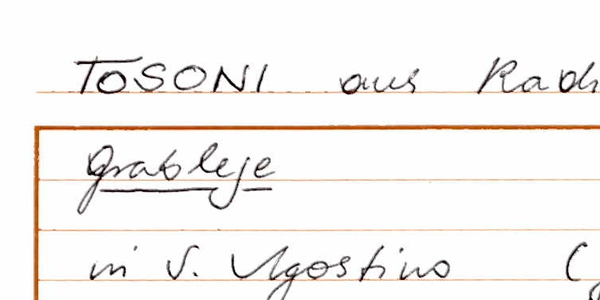 TOSONI aus
Grablege
in S. Agostino (